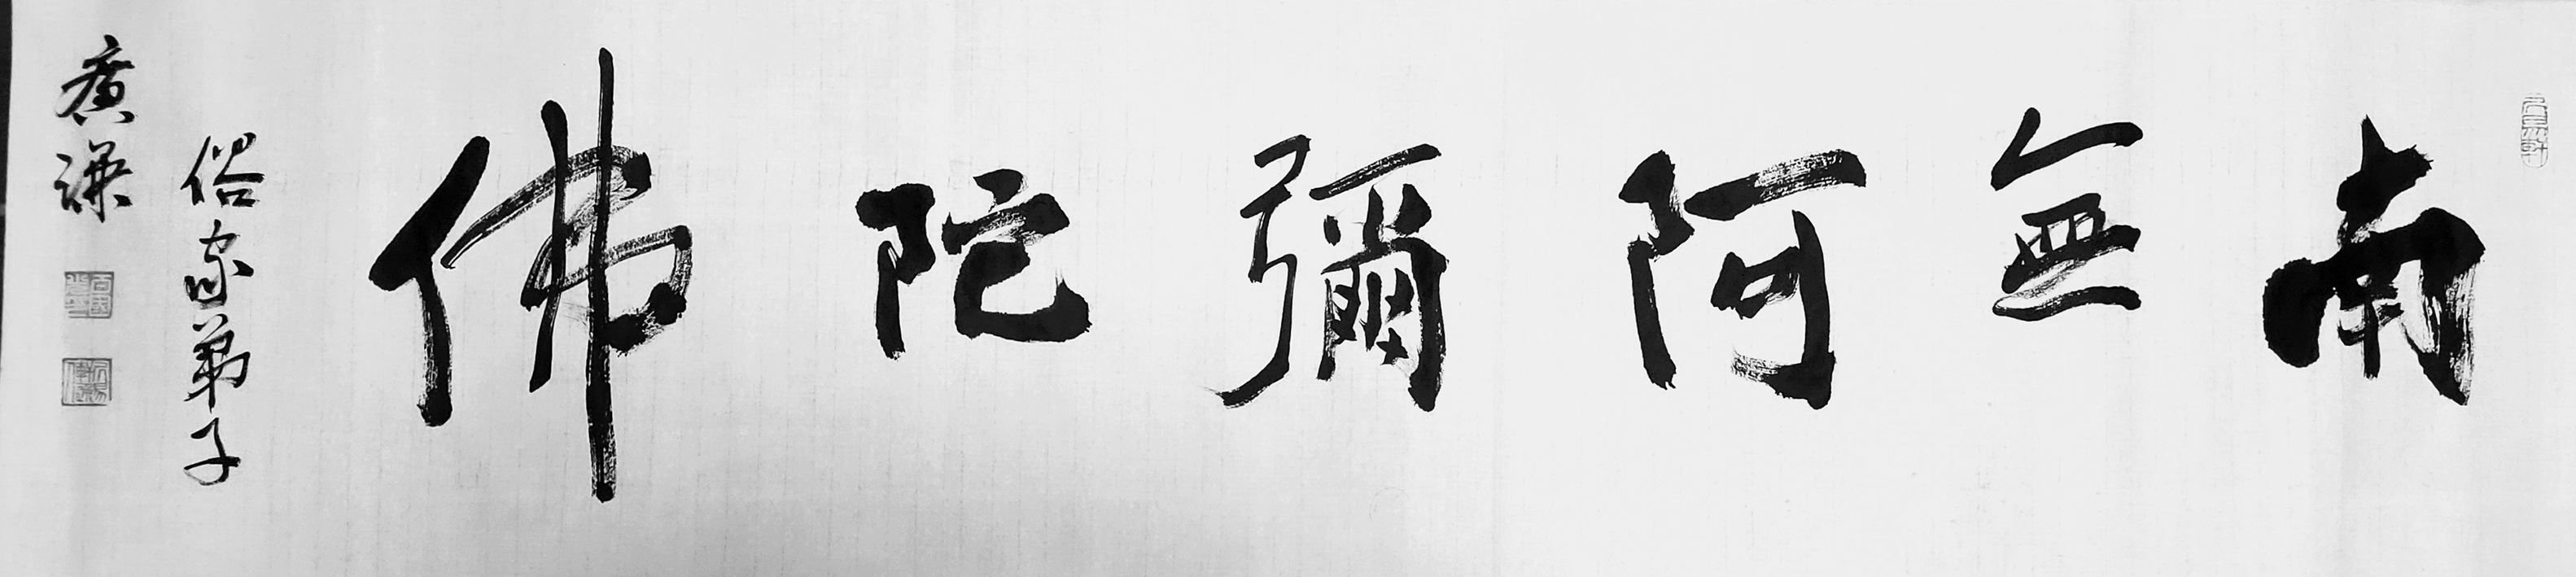 南無阿彌陀佛
俗家弟子
廣謙